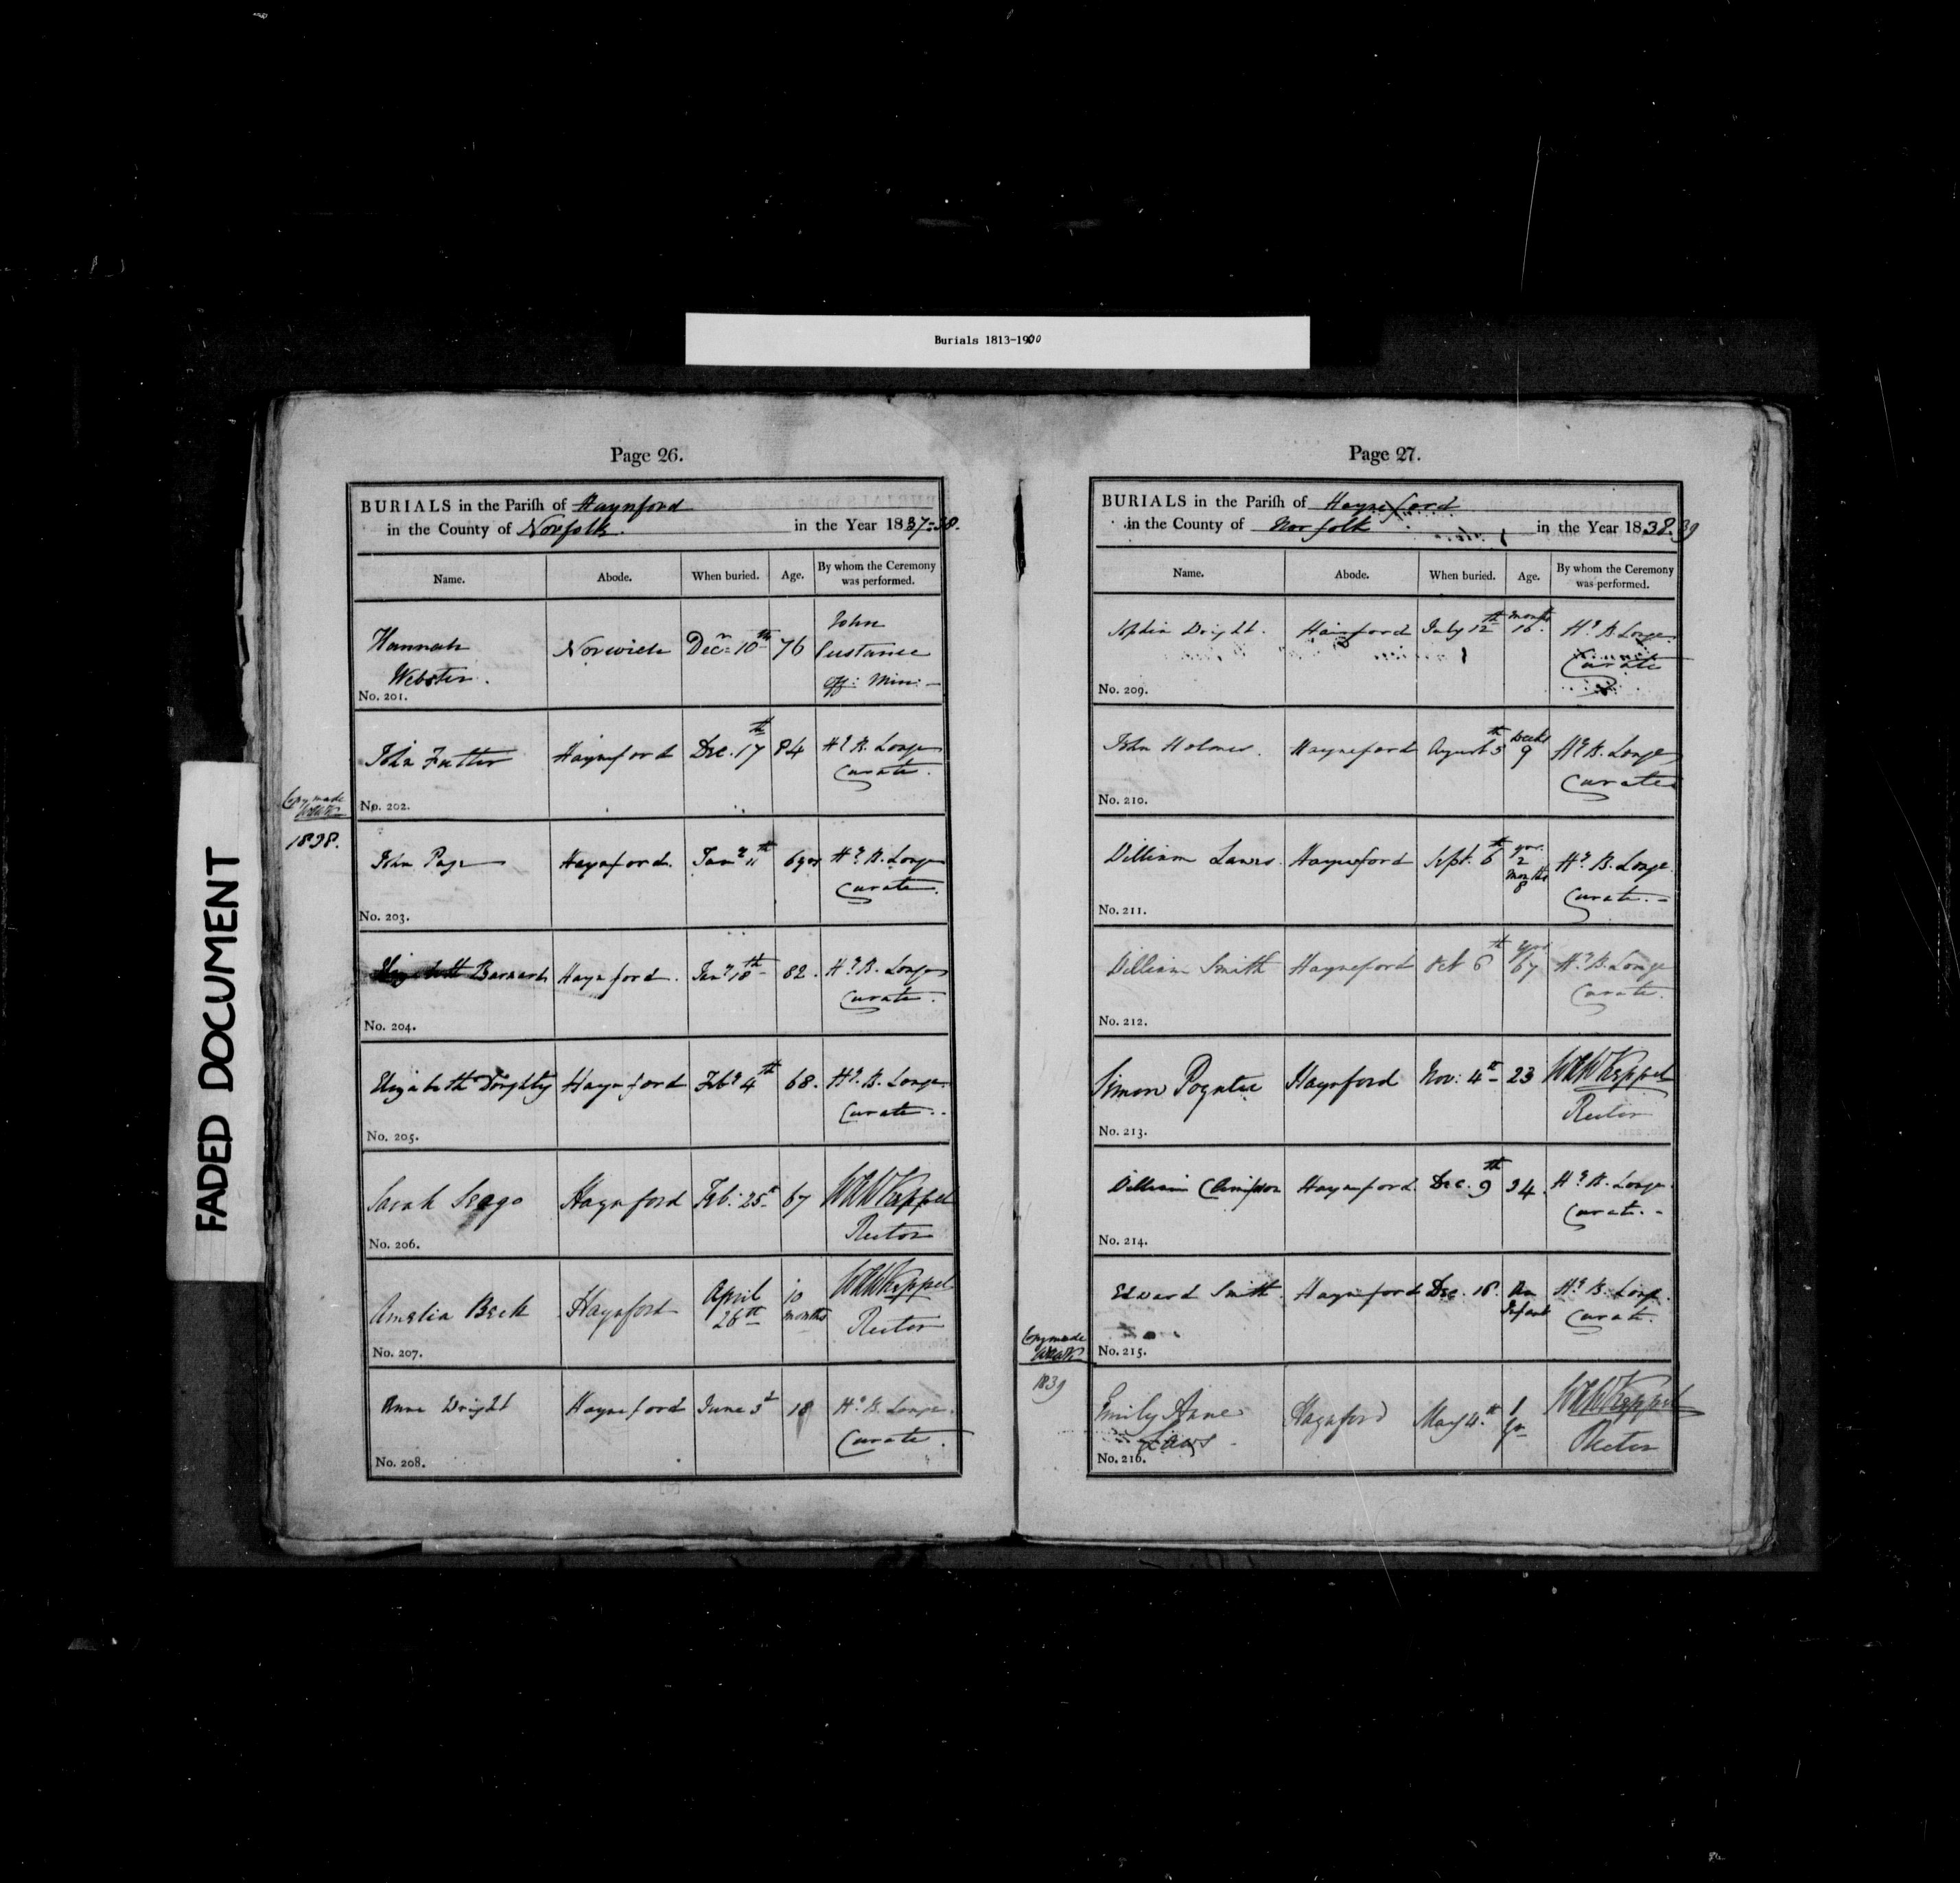 Burials 1813-1900
FADED DOCUMENT
Page 26.
BURIALS in the Parish of Haynford
in the County of Norfolk. in the Year 1837-38.
Name. Abode. When buried. Age. By whom the Ceremony was performed.
Hannah Webster. Norwich Decr 10th 76 John Custance Off: Min:
No. 201.
John Futter Haynford Dec. 17th 84 Hy. B. Longe Curate.
No. 202.
Copy made
1838.
John Page Haynford. Jany 11th 6 yrs Hy. B. Longe Curate.
No. 203.
Elizabeth Barnard Haynford. Jany 18th 82. Hy. B. Longe Curate.
No. 204.
Elizabeth Doughty Haynford Feby 4th 68. Hy. B. Longe Curate.
No. 205.
Sarah Seago Haynford Feb: 25th 67 WAWKeppel Rector
No. 206.
Amelia Beck Haynford April 26th 10 months WAWKeppel Rector
No. 207.
Anne Wright Hayneford June 3d 18 Hy. B. Longe Curate.
No. 208.
Page 27.
BURIALS in the Parish of Hayneford
in the County of Norfolk in the Year 1838.39
Name. Abode. When buried. Age. By whom the Ceremony was performed.
Sophia Wright. Hainford July 12th months 16. Hy. B. Longe Curate
No. 209.
John Holmes. Hayneford August 5th weeks 9 Hy. B. Longe Curate
No. 210.
William Laws. Hayneford Sept. 6th yrs. 2 months 8 Hy. B. Longe Curate.
No. 211.
William Smith Hayneford Oct 6th yrs 67 Hy. B. Longe Curate.
No. 212.
Simon Poynter Haynford Nov: 4th 23 WAWKeppel Rector
No. 213.
William Haynford. Dec. 9th 34. Hy. B. Longe Curate.
No. 214.
Edward Smith Haynford Dec. 18. An Infant Hy. B. Longe Curate.
No. 215.
Copy made
1839
Emily Anne Laws Haynford May 4th 1 yr WAWKeppel Rector
No. 216.